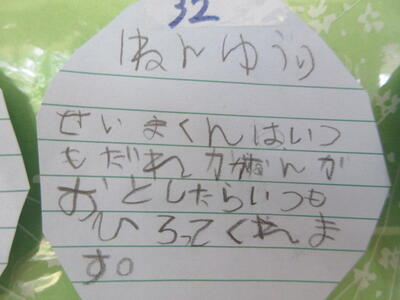 32
ゆうり
せいまくんはいつ
もだれかがなんか
おとしたらいつも
ひろってくれま
す。